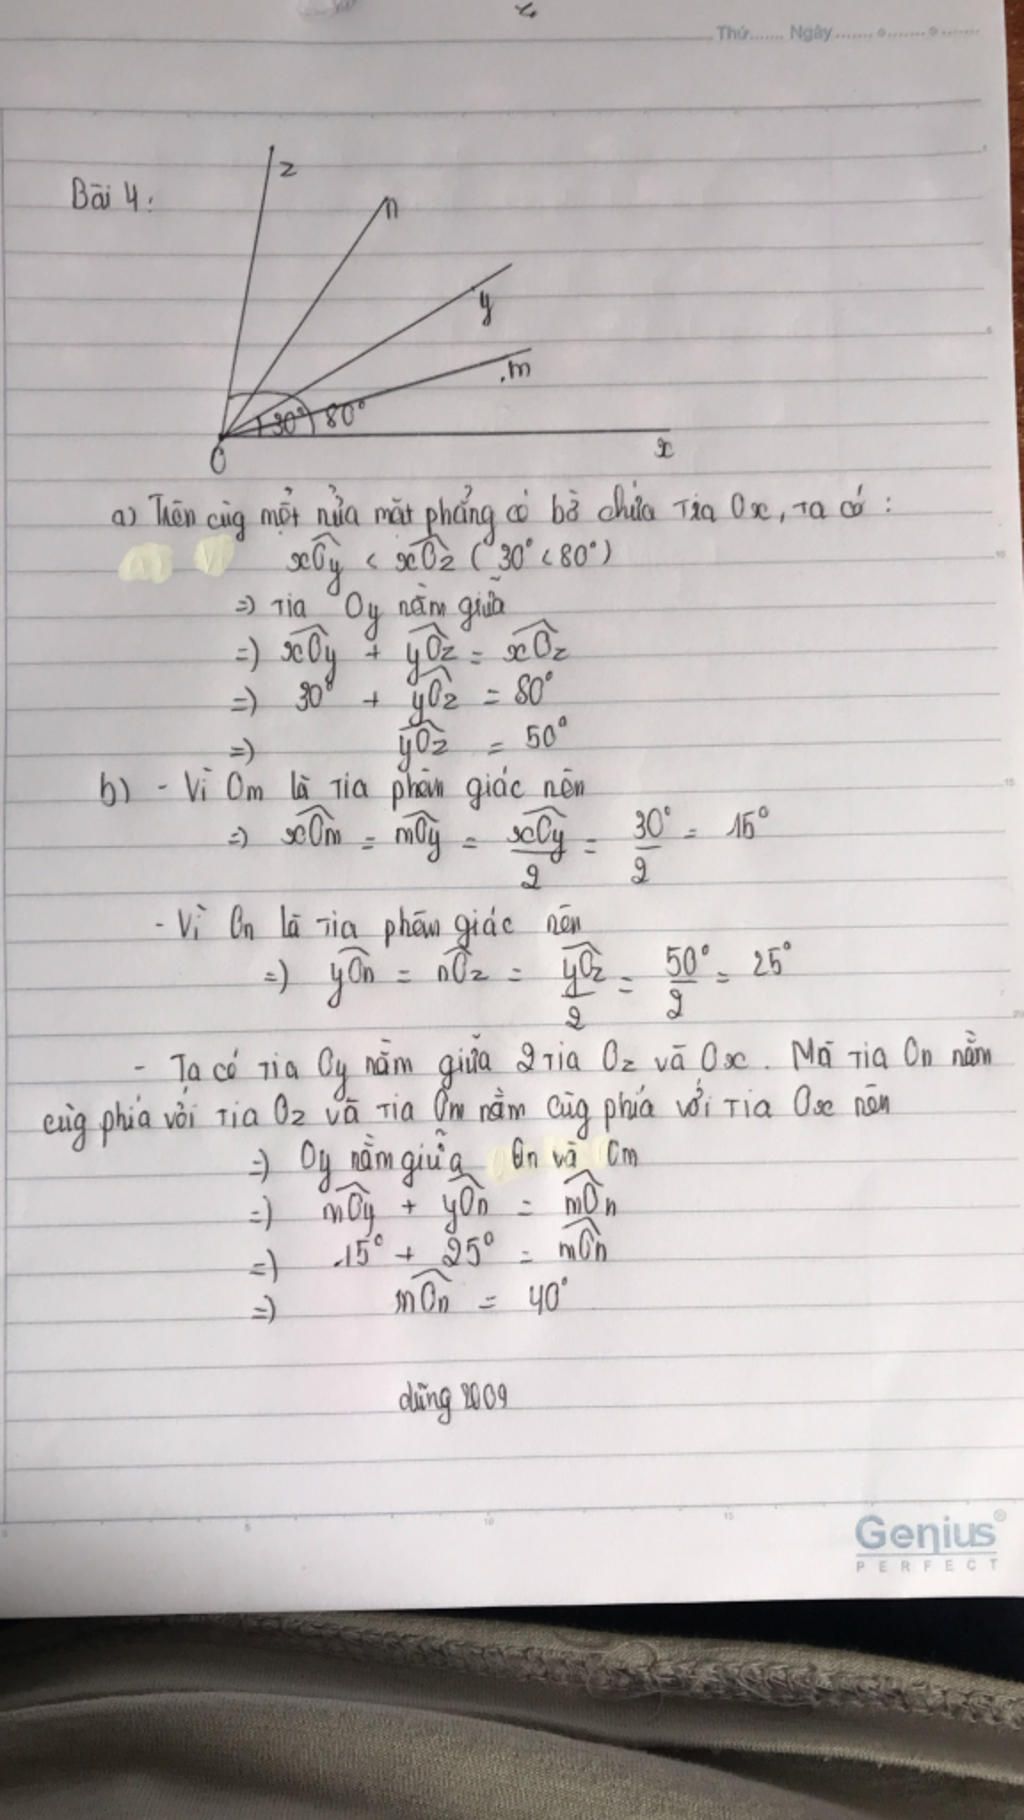 Thứ....... Ngày........o........o........
Bài 4:
z
n
y
m
30° 80°
O
x
a) Trên cùg một nửa mặt phẳng có bờ chứa tia Ox, ta có:
xOy < xOz (30° < 80°)
=) tia Oy nằm giữa
=) xOy + yOz = xOz
=) 30° + yOz = 80°
=) yOz = 50°
b) - Vì Om là tia phân giác nên
=) xOm = mOy = xOy/2 = 30°/2 = 15°
- Vì On là tia phân giác nên
=) yOn = nOz = yOz/2 = 50°/2 = 25°
- Ta có tia Oy nằm giữa 2 tia Oz và Ox. Mà tia On nằm
cùg phía với tia Oz và tia Om nằm cùg phía với tia Ox nên
=) Oy nằm giữa On và Om
=) mOy + yOn = mOn
=) 15° + 25° = mOn
=) mOn = 40°
dũng 2009
5 10 15
Genius®
PERFECT